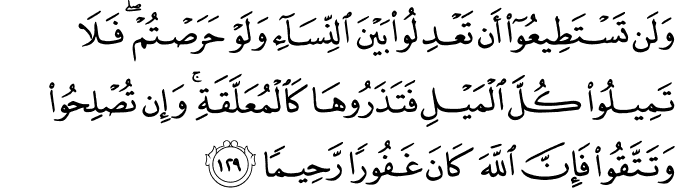 وَلَن تَسْتَطِيعُوٓا۟ أَن تَعْدِلُوا۟ بَيْنَ ٱلنِّسَآءِ وَلَوْ حَرَصْتُمْ ۖ فَلَا
تَمِيلُوا۟ كُلَّ ٱلْمَيْلِ فَتَذَرُوهَا كَٱلْمُعَلَّقَةِ ۚ وَإِن تُصْلِحُوا۟
وَتَتَّقُوا۟ فَإِنَّ ٱللَّهَ كَانَ غَفُورًا رَّحِيمًا ١٢٩